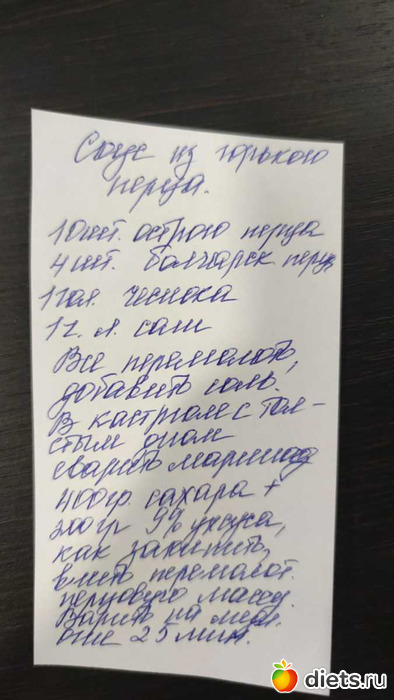 Соус из горького
перца.
10шт. острого перца
4 шт. болгарск перц
1 гол. чеснока
1 ч. л. соли
Все перемолоть,
добавить соль.
В кастрюле с тол-
стым дном
сварить маринад
400гр. сахара +
200гр 9% уксуса,
как закипит,
влить перемолот.
перцовую массу.
Варить на медл.
огне 25 мин.
diets.ru